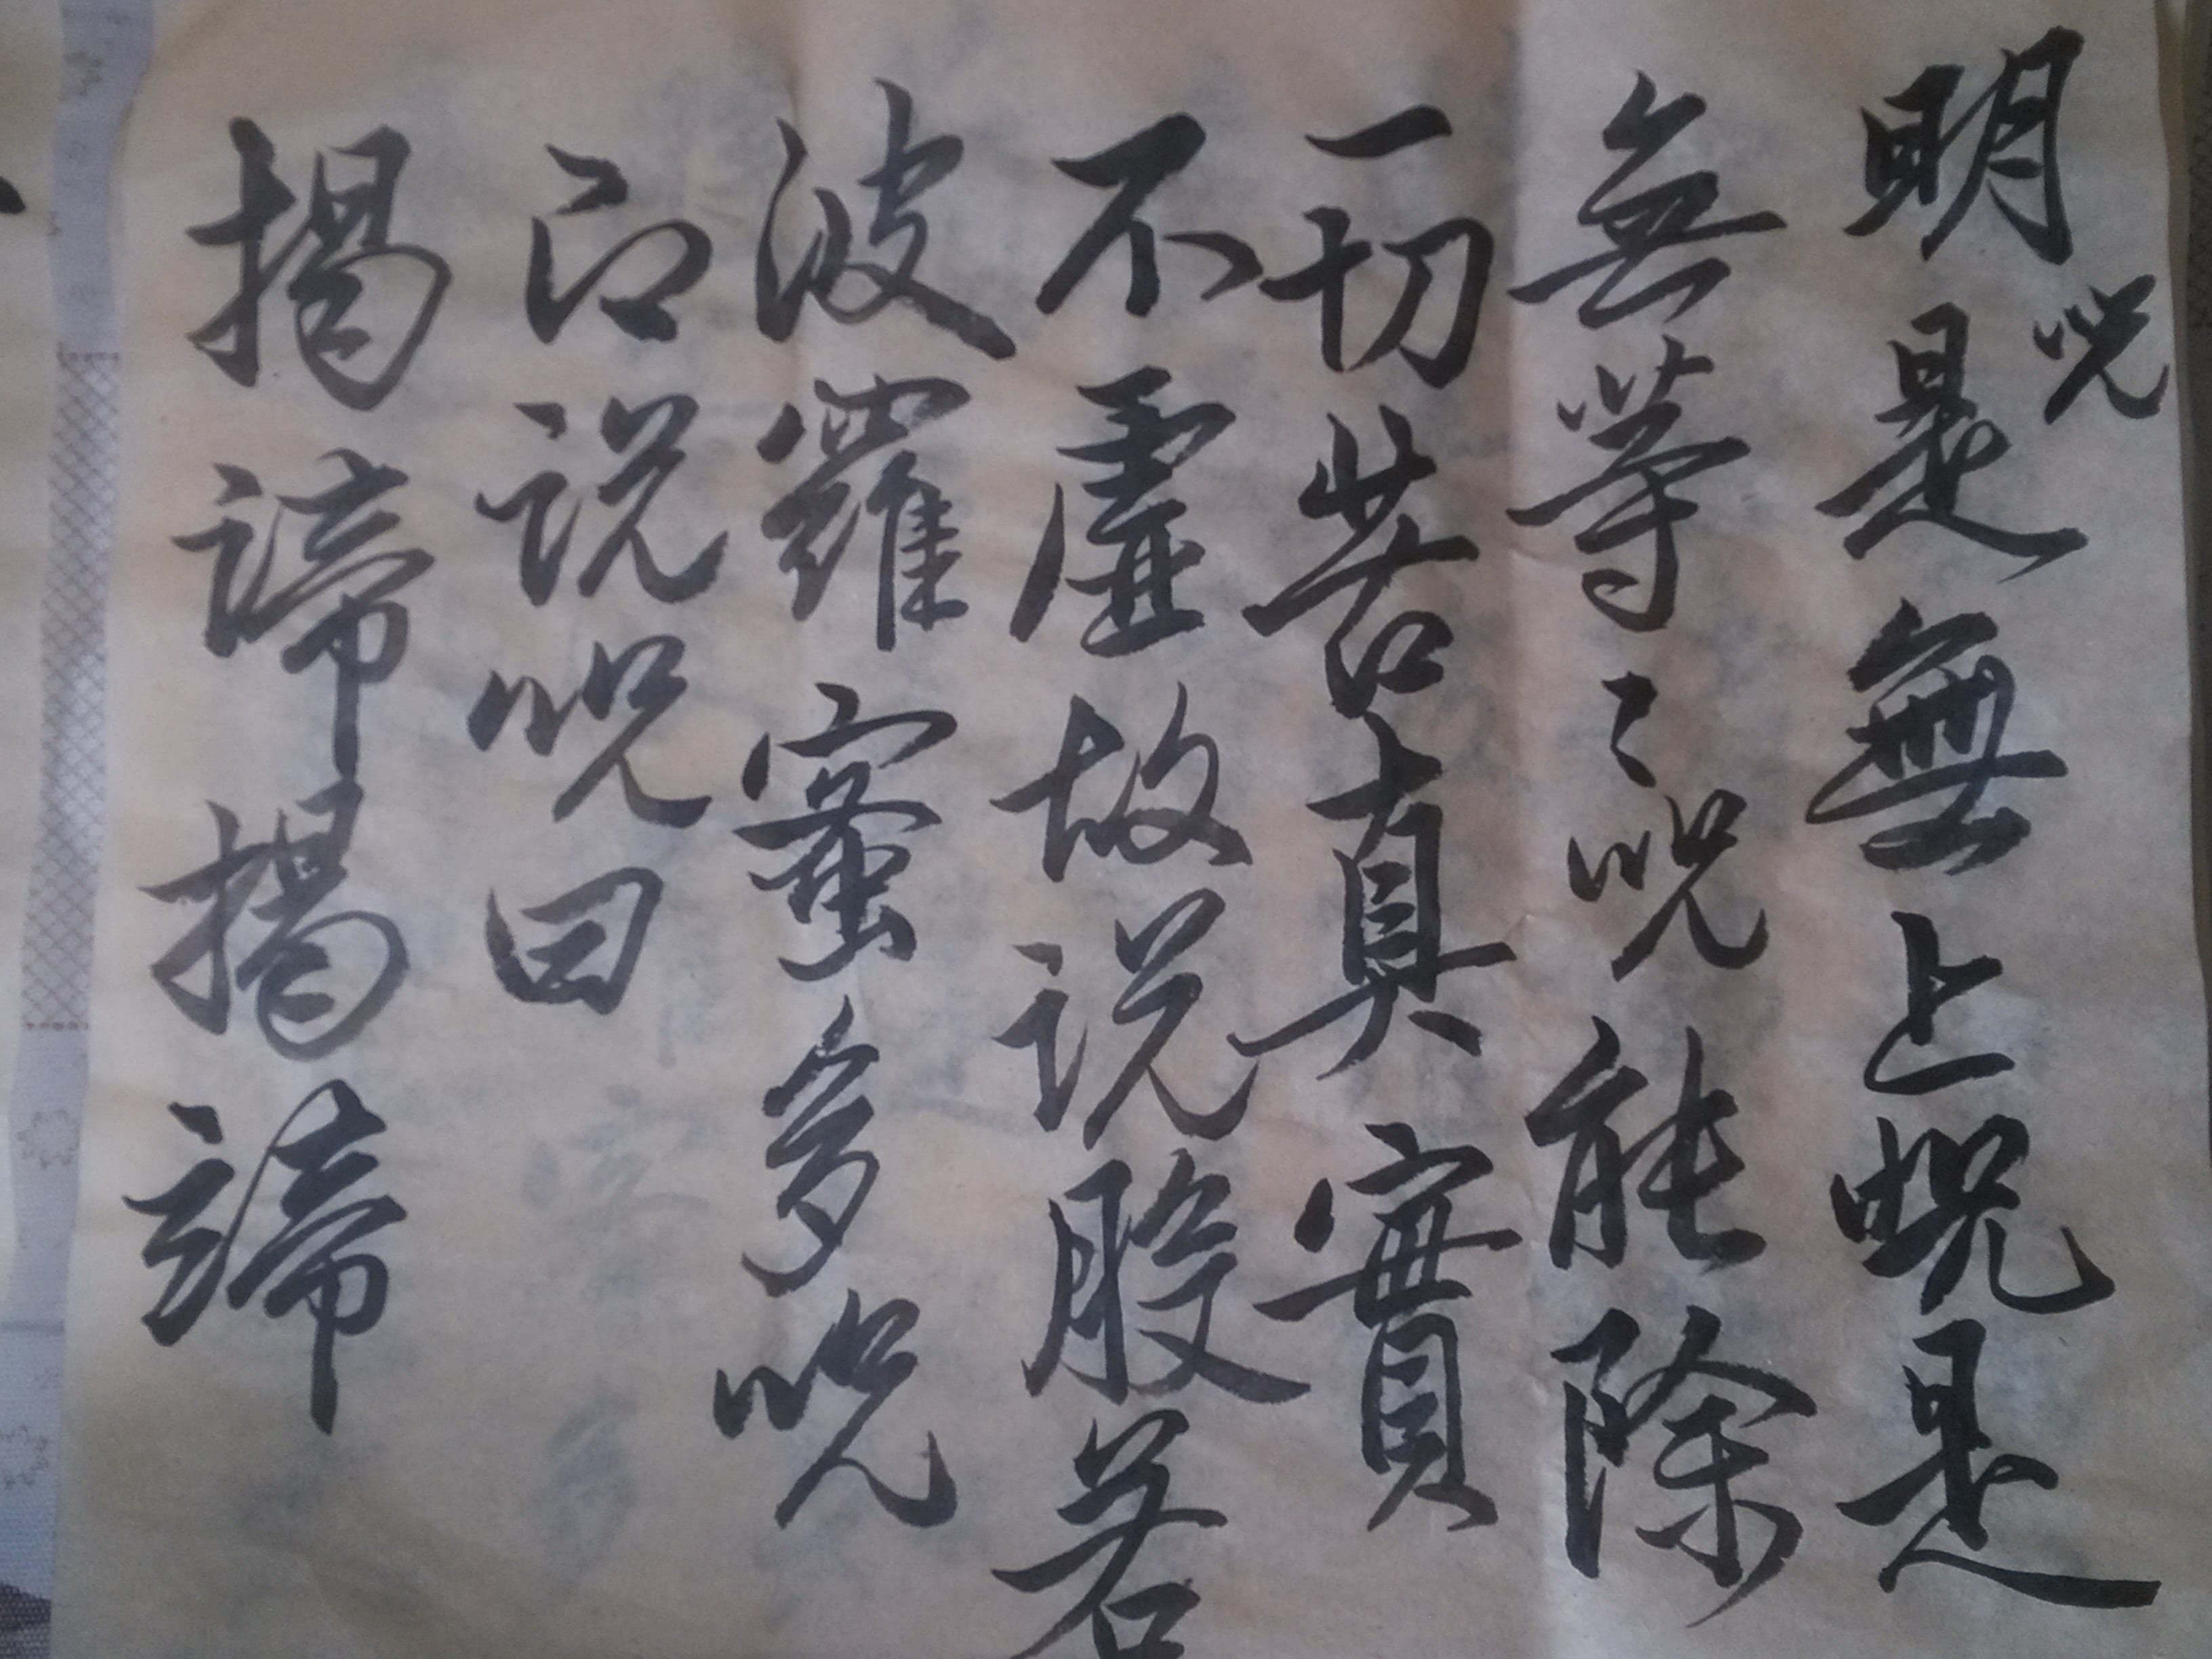 明呪是無上呪是
無等〻呪能除
一切苦真實
不虛故说般若
波羅蜜多呪
即说呪曰
揭諦揭諦